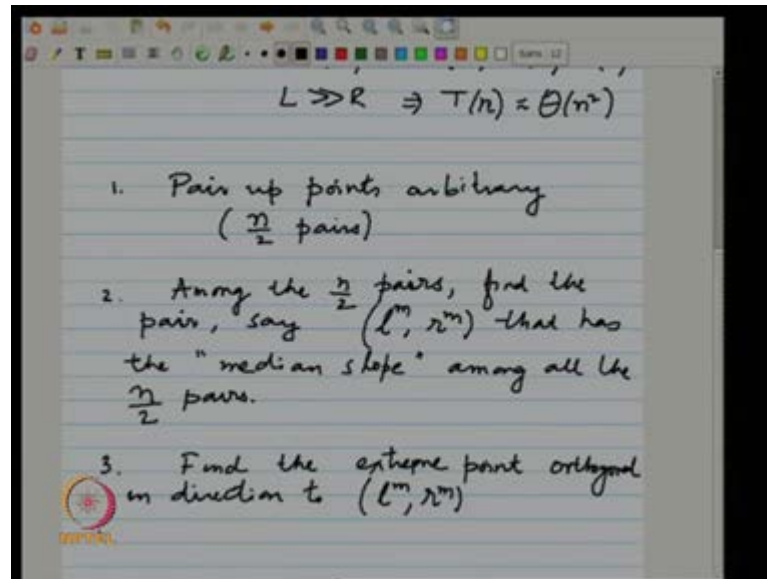 L ≫ R ⇒ T(n) ≈ Θ(n²)
1. Pair up points arbitrary
( n/2 pairs)
2. Among the n/2 pairs, find the
pair, say (lᵐ, rᵐ) that has
the "median slope" among all the
n/2 pairs.
3. Find the extreme point orthogonal
in direction to (lᵐ, rᵐ)
NPTEL